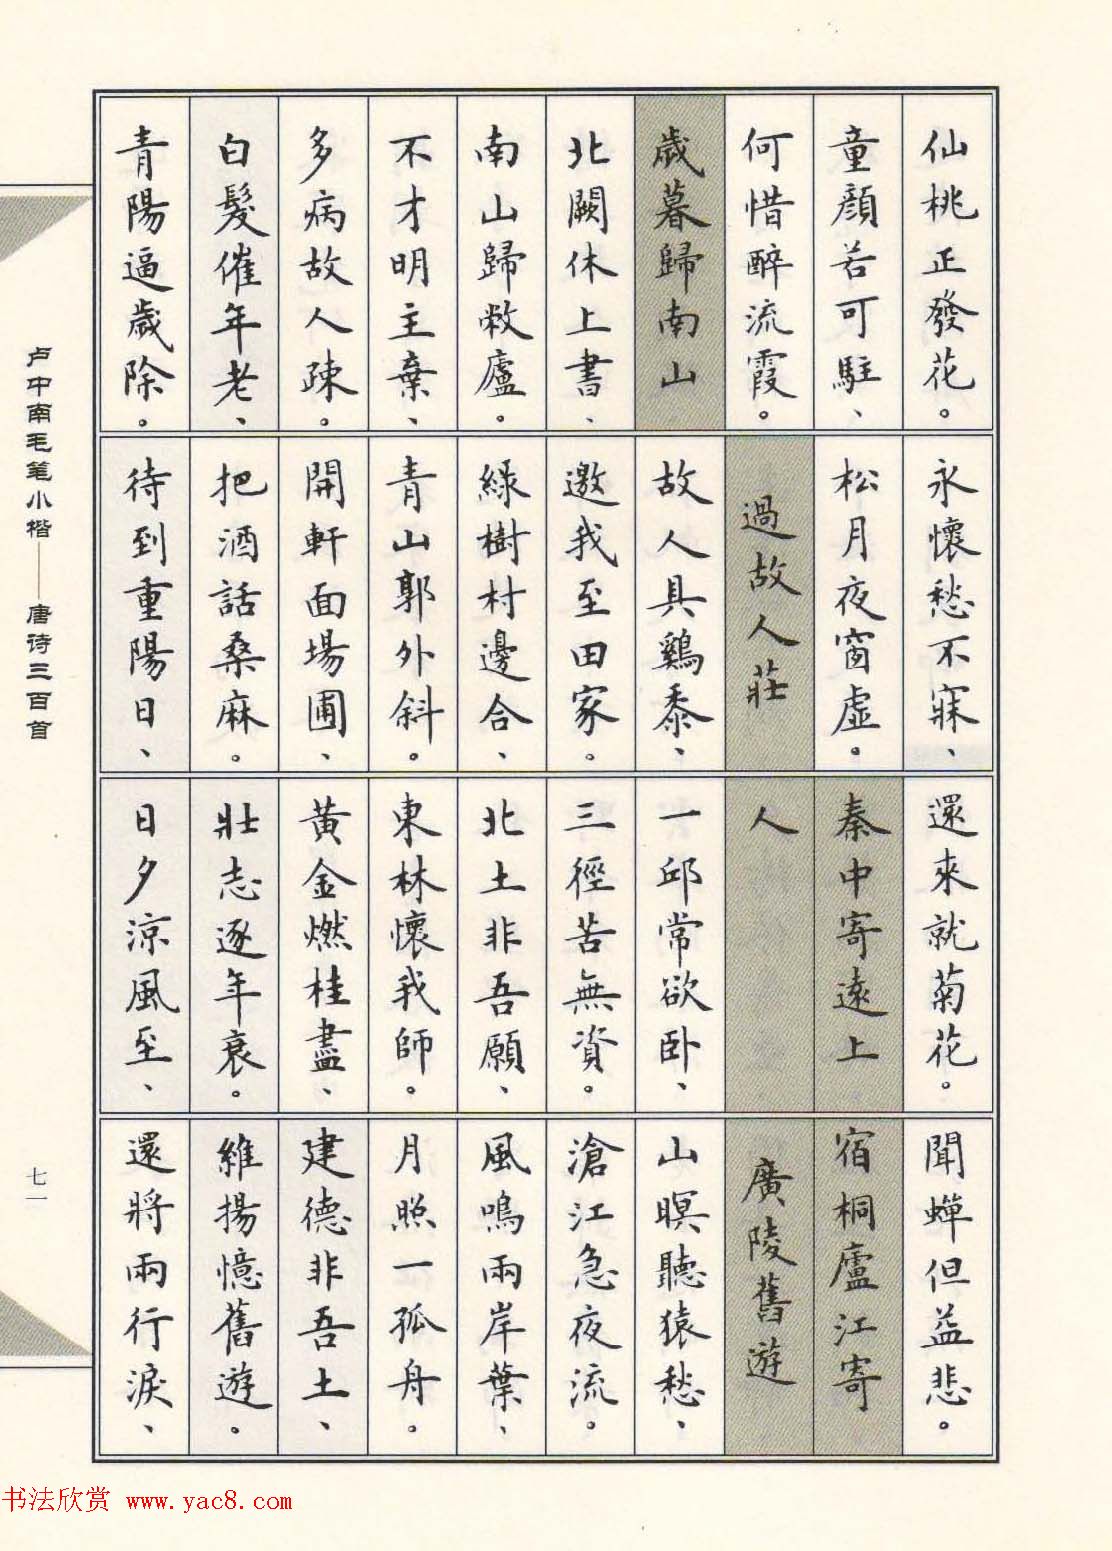 仙桃正發花。
童顏若可駐、
何惜醉流霞。
歲暮歸南山
北闕休上書、
南山歸敝廬。
不才明主棄、
多病故人疎。
白髮催年老、
青陽逼歲除。
永懷愁不寐、
松月夜窗虛。
過故人莊
故人具鷄黍、
邀我至田家。
綠樹村邊合、
青山郭外斜。
開軒面場圃、
把酒話桑麻。
待到重陽日、
還來就菊花。
秦中寄遠上
人
一邱常欲卧、
三徑苦無資。
北土非吾願、
東林懷我師。
黃金燃桂盡、
壯志逐年衰。
日夕涼風至、
聞蟬但益悲。
宿桐廬江寄
廣陵舊遊
山暝聽猿愁、
滄江急夜流。
風鳴兩岸葉、
月照一孤舟。
建德非吾土、
維揚憶舊遊。
還將兩行淚、
卢中南毛笔小楷——唐诗三百首
七一
书法欣赏 www.yac8.com